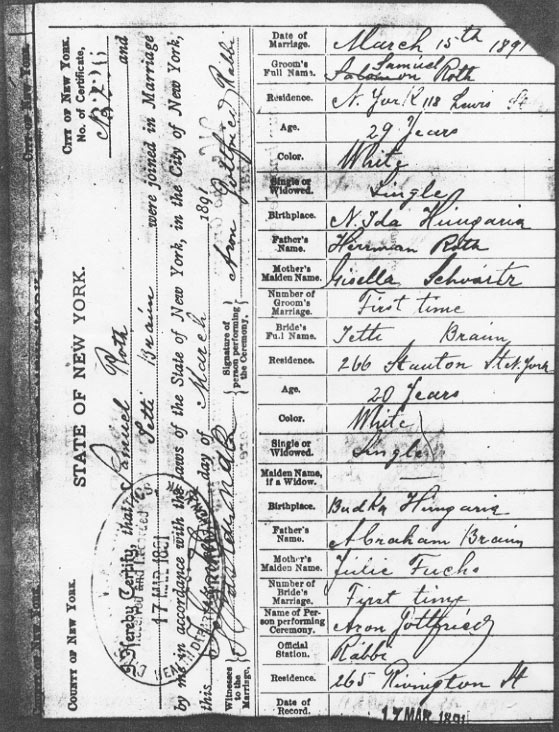 CITY OF NEW YORK.
No. of Certificate,
STATE OF NEW YORK.
COUNTY OF NEW YORK.
I Hereby Certify, that Samuel Roth and
Jetti Braun were joined in Marriage
by me in accordance with the laws of the State of New York, in the City of New York,
this day of March 1891
Witnesses
to the
Marriage.
Signature of
person performing
the Ceremony,
Aron Gottfried Rabbi
17 MAR 1891
Date of
Marriage. March 15th 1891
Groom's
Full Name. Samuel
Salamon Roth
Residence. N. York 118 Lewis St
Age. 29 Years
Color. White
Single or
Widowed. Single
Birthplace. N. Ida Hungaria
Father's
Name. Herrman Roth
Mother's
Maiden Name. Gisella Schvartz
Number of
Groom's
Marriage. First time
Bride's
Full Name. Jetti Braun
Residence. 266 Stanton St N. York
Age. 20 Years
Color. White
Single or
Widowed. Single
Maiden Name,
if a Widow. —
Birthplace. Budka Hungaria
Father's
Name. Abraham Braun
Mother's
Maiden Name. Julie Fuchs
Number of
Bride's
Marriage. First time
Name of Per-
son performing
Ceremony. Aron Gottfried
Official
Station. Rabbi
Residence. 265 Rivington St
Date of
Record. 17 MAR 1891